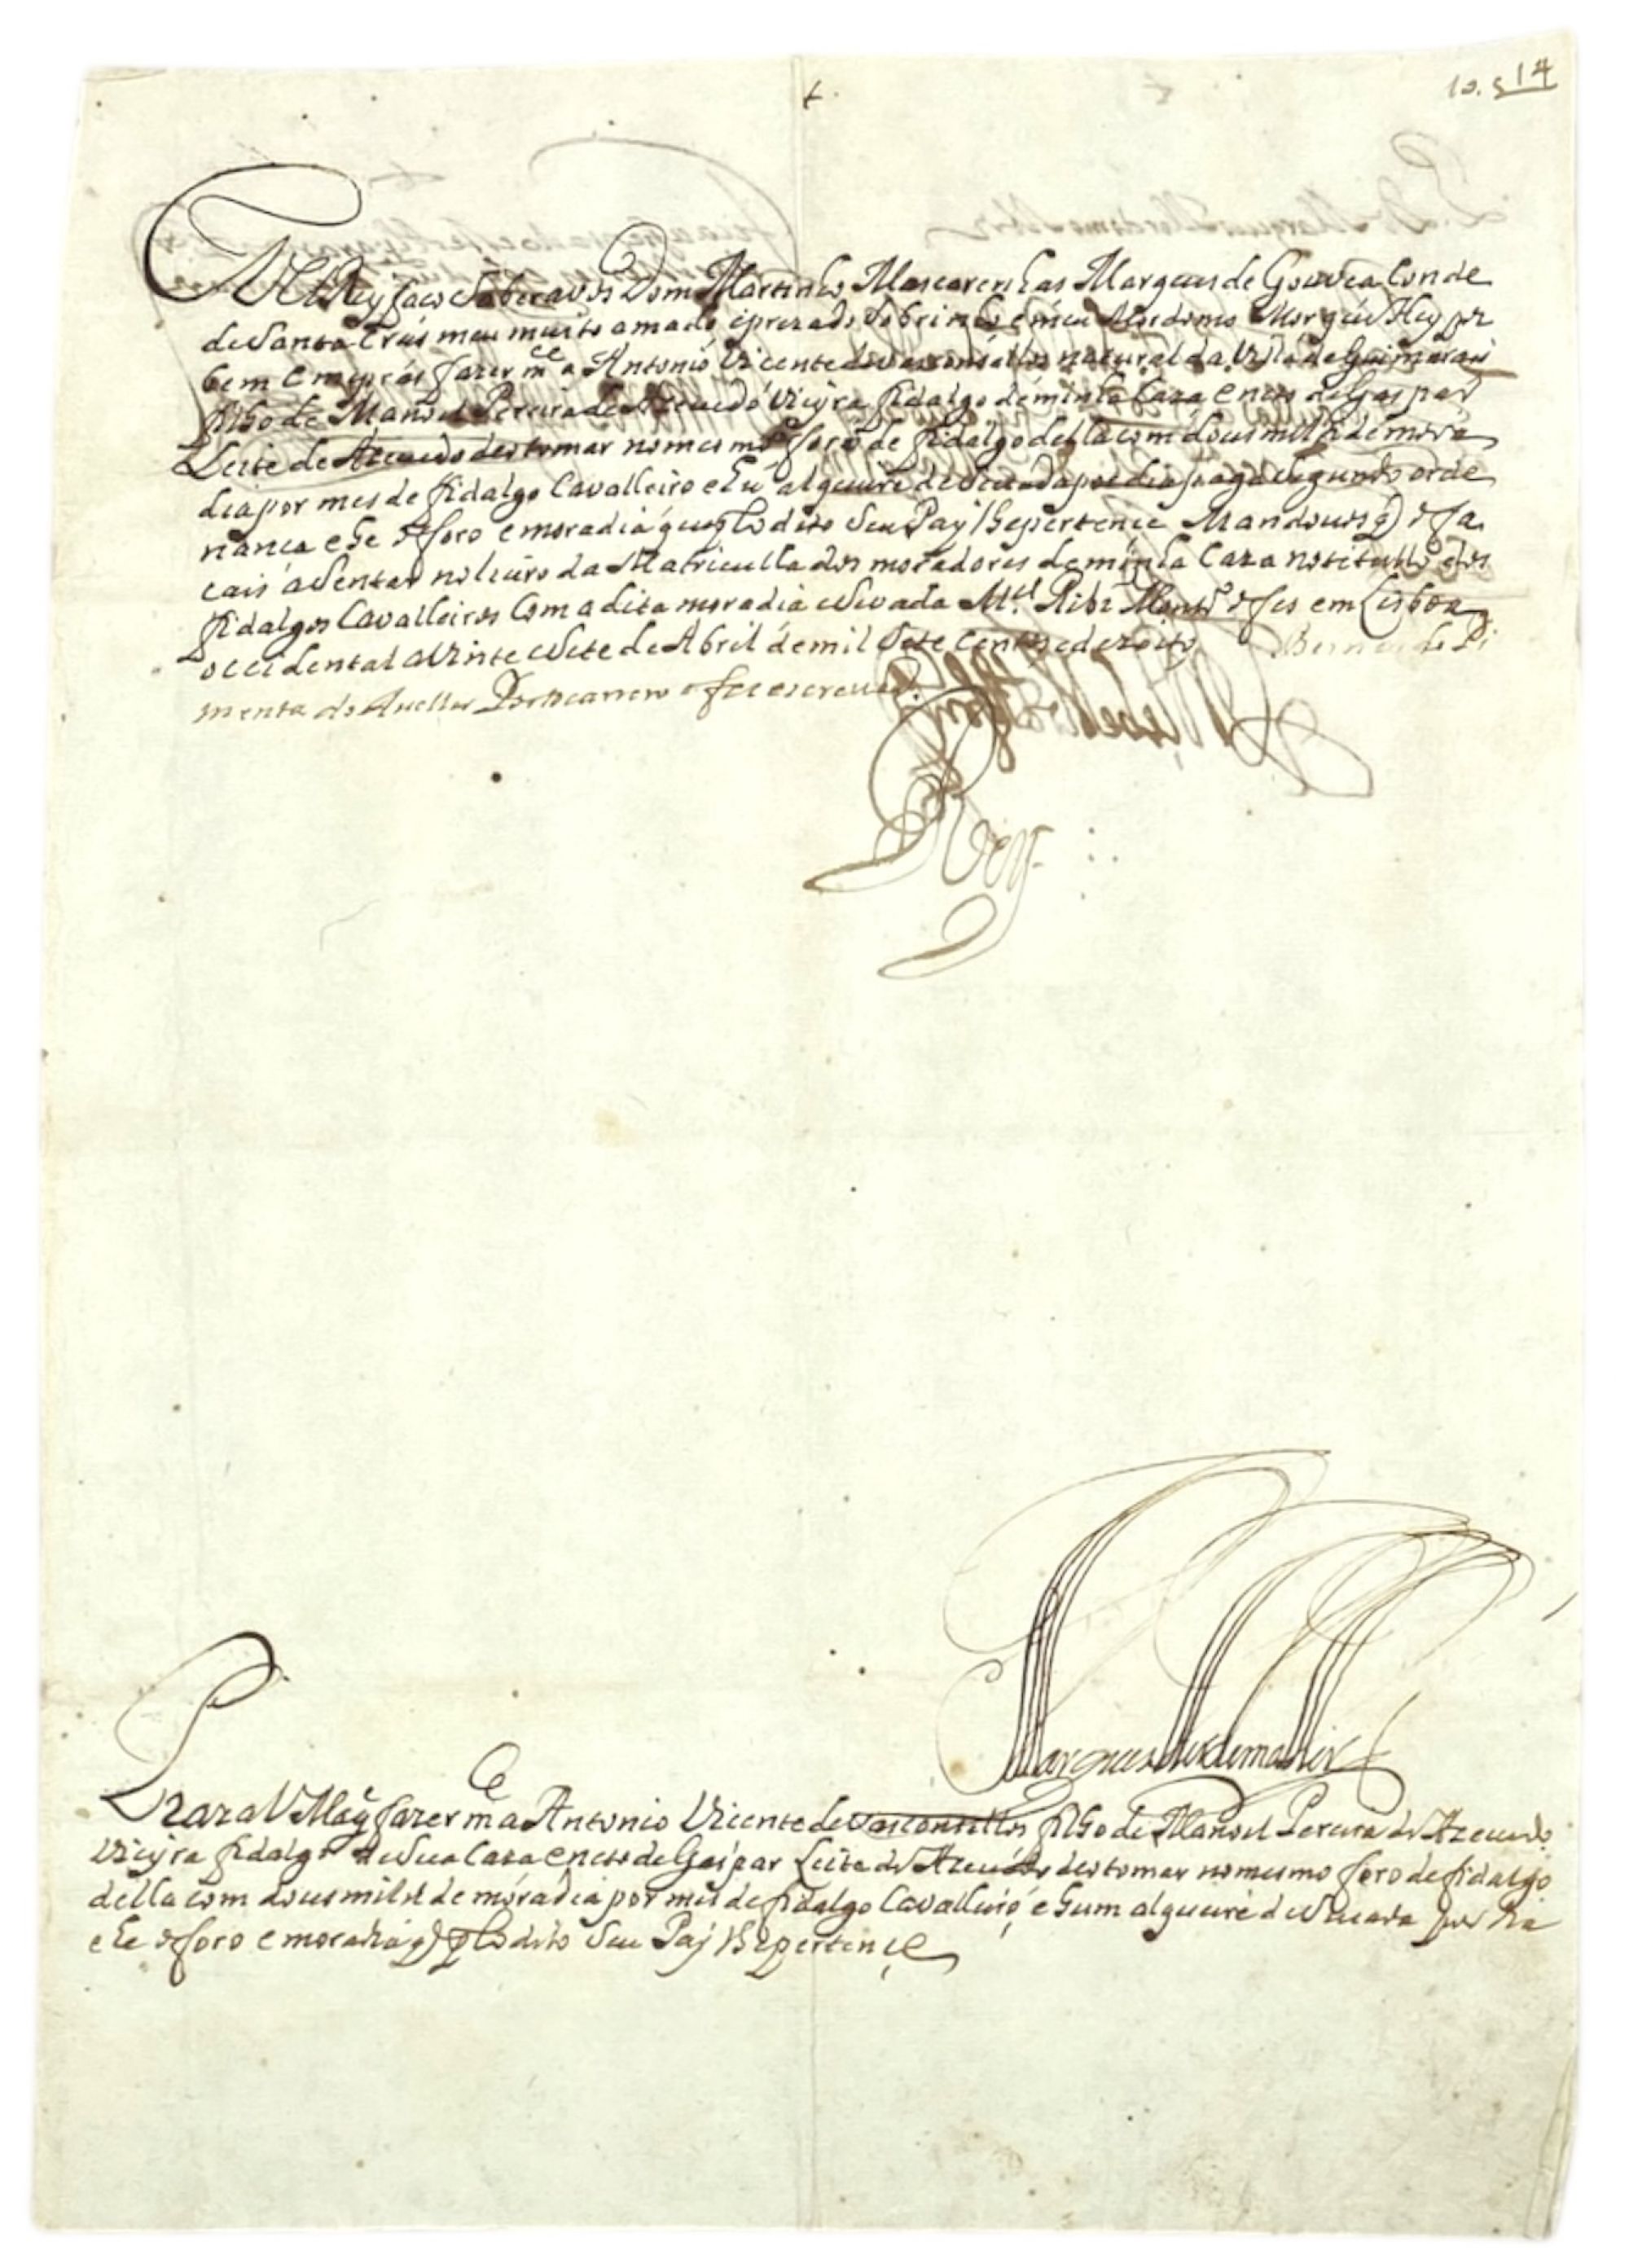 10. 5 14
Eu ElRey faço Saber avos Dom Martinho Mascarenhas Marques de Gouvea Conde
de Santa Crus meu muito amado e prezado Sobrinho e meu Mordomo Mor que Hey por
bem e me prás fazer m.ce a Antonio Vicente de Vasconsellos natural da Villa de Guimarais
filho de Manoel Pereira de Azevedo Vieyra fidalgo de minha Caza e neto de Gaspar
Leite de Azevedo de o tomar no mesmo foro de fidalgo della com dous mil rs de mora
dia por mes de fidalgo Cavalleiro e hu alqueire de Sevada por dia paga Segundo orde
nança e he o foro e moradia q pello dito Seu Pay lhe pertençe Mandovos q o fa
cais aSentar no livro da Matriculla dos moradores de minha Caza no titullo dos
fidalgos Cavalleiros Com a dita moradia e Sevada M.el Ribr.o o fes em Lisboa
occidental a Vinte e Sete de Abril de mil Sete centos e dezoito Bernardo Pi
menta do Avellar Portocarrero o fez escrever.
Rey
Marques Mordomo Mor
Ha V Mag.de por bem fazer m.ce a Antonio Vicente de Vasconsellos filho de Manoel Pereira de Azevedo
Vieyra fidalgo de Sua Caza e neto de Gaspar Leite de Azevedo de o tomar no mesmo foro de fidalgo
della com dous mil rs de moradia por mes de fidalgo Cavalleiro e hum alqueire de Sevada por dia
e he o foro e moradia q pello dito Seu Pay lhe pertençe